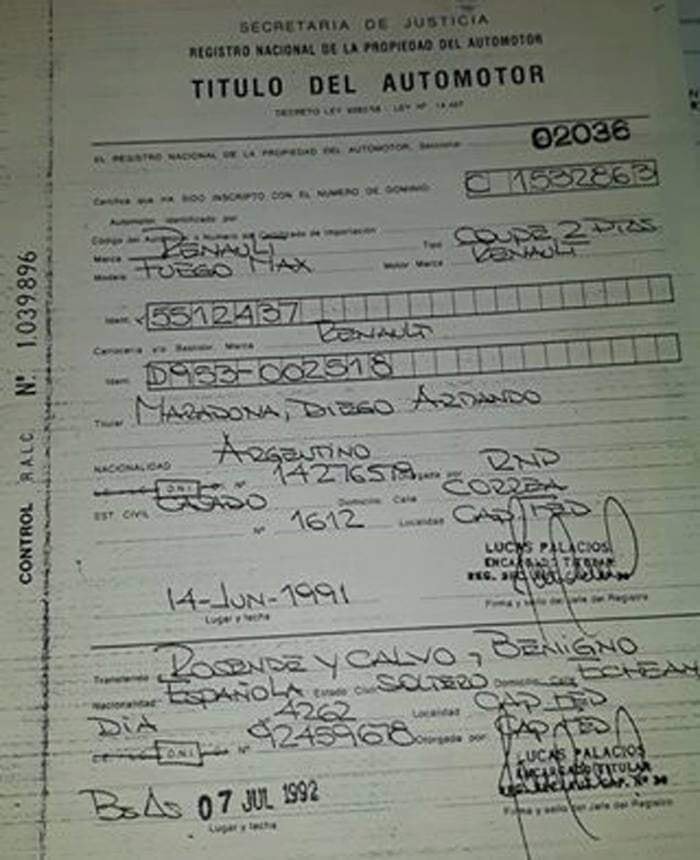 SECRETARIA DE JUSTICIA
REGISTRO NACIONAL DE LA PROPIEDAD DEL AUTOMOTOR
TITULO DEL AUTOMOTOR
DECRETO LEY - LEY Nº 14.467
EL REGISTRO NACIONAL DE LA PROPIEDAD DEL AUTOMOTOR, Seccional 02036
Certifica que HA SIDO INSCRIPTO CON EL NUMERO DE DOMINIO: C 1532863
Automotor identificado por
Código del o Número de Certificado de Importación
Marca RENAULT Tipo COUPE 2 PTAS
Modelo FUEGO MAX Motor Marca RENAULT
Ident. 5512437
Carrocería y/o Bastidor, Marca RENAULT
Ident. D953-002518
Titular MARADONA, DIEGO ARMANDO
NACIONALIDAD ARGENTINO
D.N.I. Nº 14276579 por RNP
EST. CIVIL CASADO Domicilio: Calle CORREA
Nº 1612 Localidad CAP FED
LUCAS PALACIOS
ENCARGADO TITULAR
14-JUN-1991
Lugar y fecha
Firma y sello del Jefe del Registro
Transferido ROSENDE Y CALVO, BENIGNO
Nacionalidad ESPAÑOLA Estado Civil SOLTERO Domicilio Calle ECHEAN
DIA 4262 Localidad CAP FED
D.N.I. Nº 92459678 Otorgada por CAP FED
LUCAS PALACIOS
ENCARGADO TITULAR
Bs As 07 JUL 1992
Lugar y fecha
Firma y sello del Jefe del Registro
CONTROL R.A.L.C. Nº 1.039.896